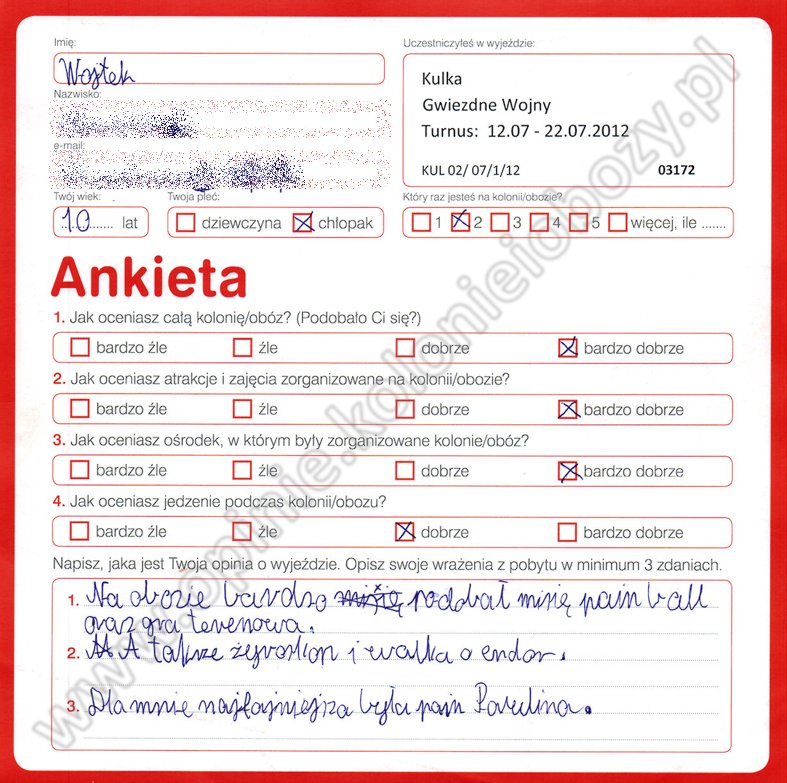 Imię:
Wojtek
Nazwisko:
e-mail:
Twój wiek:
10 lat
Twoja płeć:
dziewczyna chłopak
Uczestniczyłeś w wyjeździe:
Kulka
Gwiezdne Wojny
Turnus: 12.07 - 22.07.2012
KUL 02/ 07/1/12 03172
Który raz jesteś na kolonii/obozie?
1 2 3 4 5 więcej, ile .......
Ankieta
1. Jak oceniasz całą kolonię/obóz? (Podobało Ci się?)
bardzo źle źle dobrze bardzo dobrze
2. Jak oceniasz atrakcje i zajęcia zorganizowane na kolonii/obozie?
bardzo źle źle dobrze bardzo dobrze
3. Jak oceniasz ośrodek, w którym były zorganizowane kolonie/obóz?
bardzo źle źle dobrze bardzo dobrze
4. Jak oceniasz jedzenie podczas kolonii/obozu?
bardzo źle źle dobrze bardzo dobrze
Napisz, jaka jest Twoja opinia o wyjeździe. Opisz swoje wrażenia z pobytu w minimum 3 zdaniach.
1. Na obozie bardzo podobał misię pain ball
oraz gra terenowa.
2. A także żyroskop i walka o endor.
3. Dla mnie najfajniejsza była pain Paulina.
www.opinie.kolonieiobozy.pl